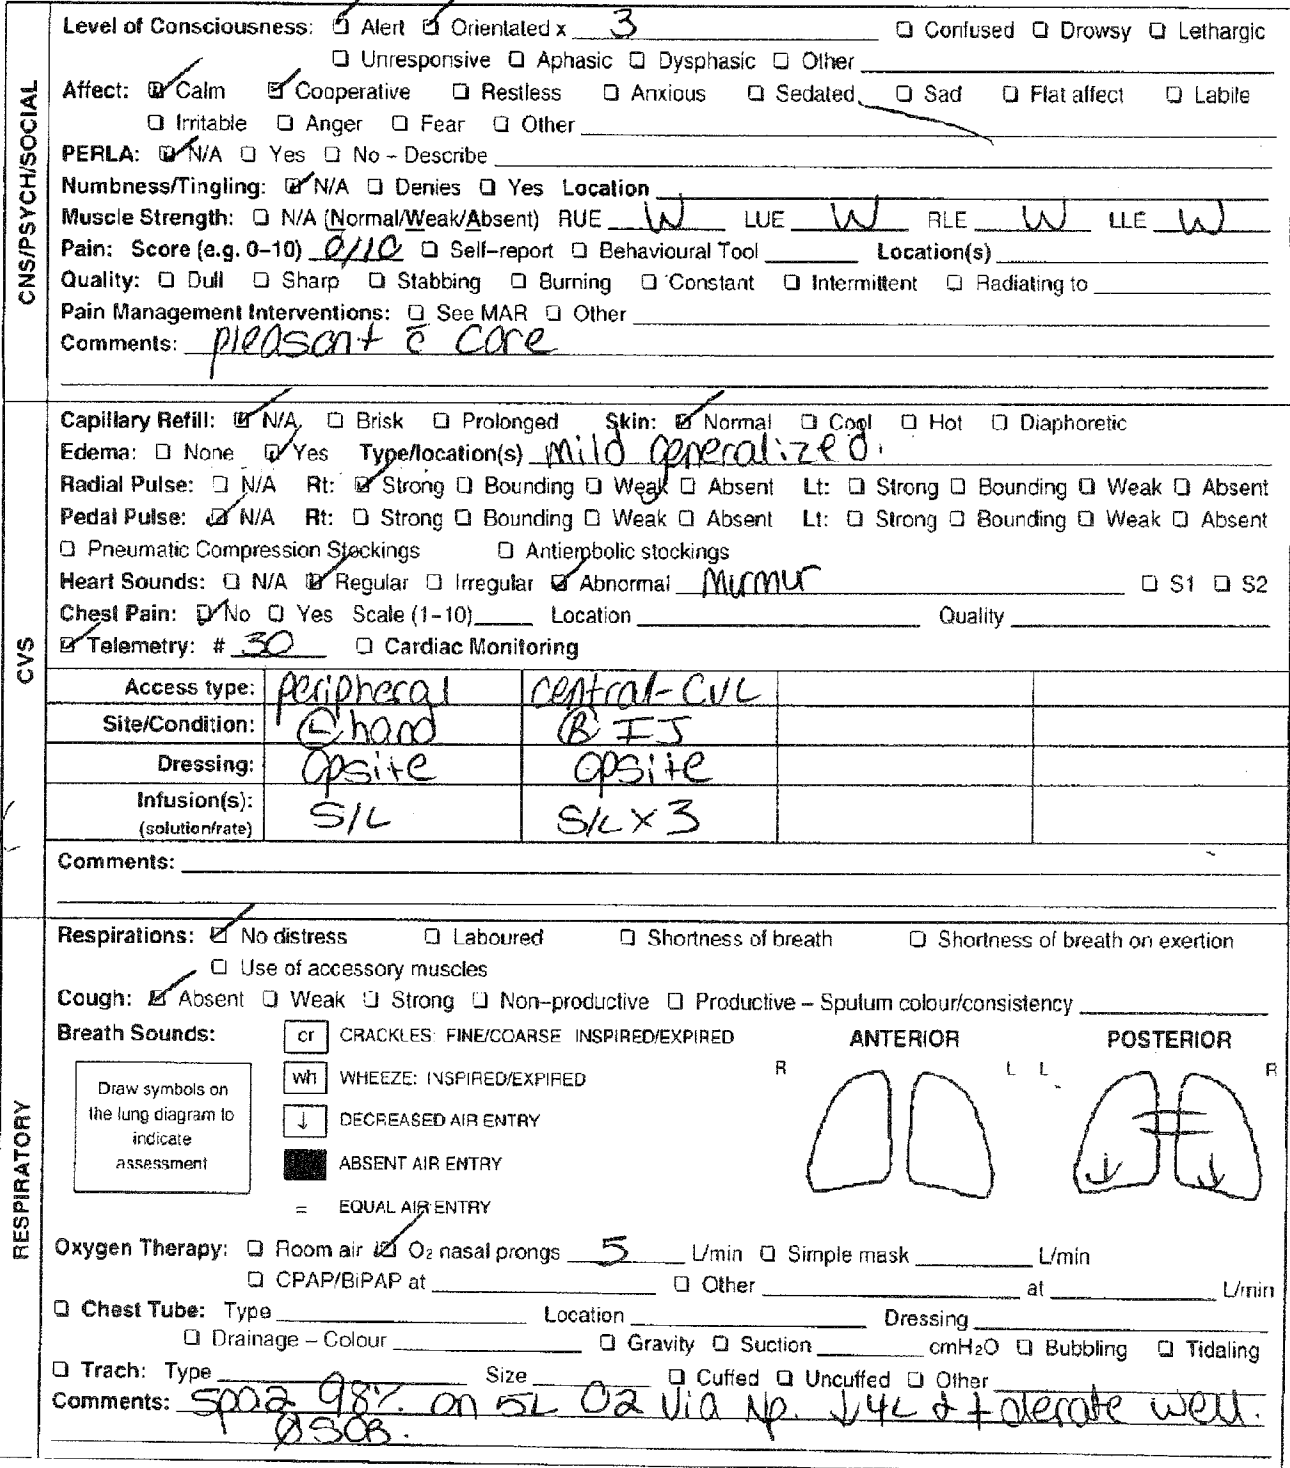 CNS/PSYCH/SOCIAL
Level of Consciousness: ☑ Alert ☑ Orientated x 3 ☐ Confused ☐ Drowsy ☐ Lethargic
☐ Unresponsive ☐ Aphasic ☐ Dysphasic ☐ Other
Affect: ☑ Calm ☑ Cooperative ☐ Restless ☐ Anxious ☐ Sedated ☐ Sad ☐ Flat affect ☐ Labile
☐ Irritable ☐ Anger ☐ Fear ☐ Other
PERLA: ☑ N/A ☐ Yes ☐ No – Describe
Numbness/Tingling: ☑ N/A ☐ Denies ☐ Yes Location
Muscle Strength: ☐ N/A (Normal/Weak/Absent) RUE W LUE W RLE W LLE W
Pain: Score (e.g. 0–10) 0/10 ☐ Self–report ☐ Behavioural Tool Location(s)
Quality: ☐ Dull ☐ Sharp ☐ Stabbing ☐ Burning ☐ Constant ☐ Intermittent ☐ Radiating to
Pain Management Interventions: ☐ See MAR ☐ Other
Comments: pleasant c̄ care
CVS
Capillary Refill: ☑ N/A ☐ Brisk ☐ Prolonged Skin: ☑ Normal ☐ Cool ☐ Hot ☐ Diaphoretic
Edema: ☐ None ☑ Yes Type/location(s) mild generalized.
Radial Pulse: ☐ N/A Rt: ☑ Strong ☐ Bounding ☐ Weak ☐ Absent Lt: ☐ Strong ☐ Bounding ☐ Weak ☐ Absent
Pedal Pulse: ☑ N/A Rt: ☐ Strong ☐ Bounding ☐ Weak ☐ Absent Lt: ☐ Strong ☐ Bounding ☐ Weak ☐ Absent
☐ Pneumatic Compression Stockings ☐ Antiembolic stockings
Heart Sounds: ☐ N/A ☑ Regular ☐ Irregular ☑ Abnormal Murmur ☐ S1 ☐ S2
Chest Pain: ☑ No ☐ Yes Scale (1–10) Location Quality
☑ Telemetry: # 30 ☐ Cardiac Monitoring
Access type: peripheral central-CVL
Site/Condition: Ⓛ hand Ⓡ IJ
Dressing: opsite opsite
Infusion(s): (solution/rate) S/L S/L x 3
Comments:
RESPIRATORY
Respirations: ☑ No distress ☐ Laboured ☐ Shortness of breath ☐ Shortness of breath on exertion
☐ Use of accessory muscles
Cough: ☑ Absent ☐ Weak ☐ Strong ☐ Non–productive ☐ Productive – Sputum colour/consistency
Breath Sounds: cr CRACKLES: FINE/COARSE INSPIRED/EXPIRED ANTERIOR POSTERIOR
wh WHEEZE: INSPIRED/EXPIRED R L L R
Draw symbols on
the lung diagram to
indicate
assessment
↓ DECREASED AIR ENTRY
ABSENT AIR ENTRY
= EQUAL AIR ENTRY
↓ = ↓
Oxygen Therapy: ☐ Room air ☑ O₂ nasal prongs 5 L/min ☐ Simple mask L/min
☐ CPAP/BiPAP at ☐ Other at L/min
☐ Chest Tube: Type Location Dressing
☐ Drainage – Colour ☐ Gravity ☐ Suction cmH₂O ☐ Bubbling ☐ Tidaling
☐ Trach: Type Size ☐ Cuffed ☐ Uncuffed ☐ Other
Comments: SpO2 98% on 5L O2 via Np. ↓4L & tolerate well.
ØSOB.